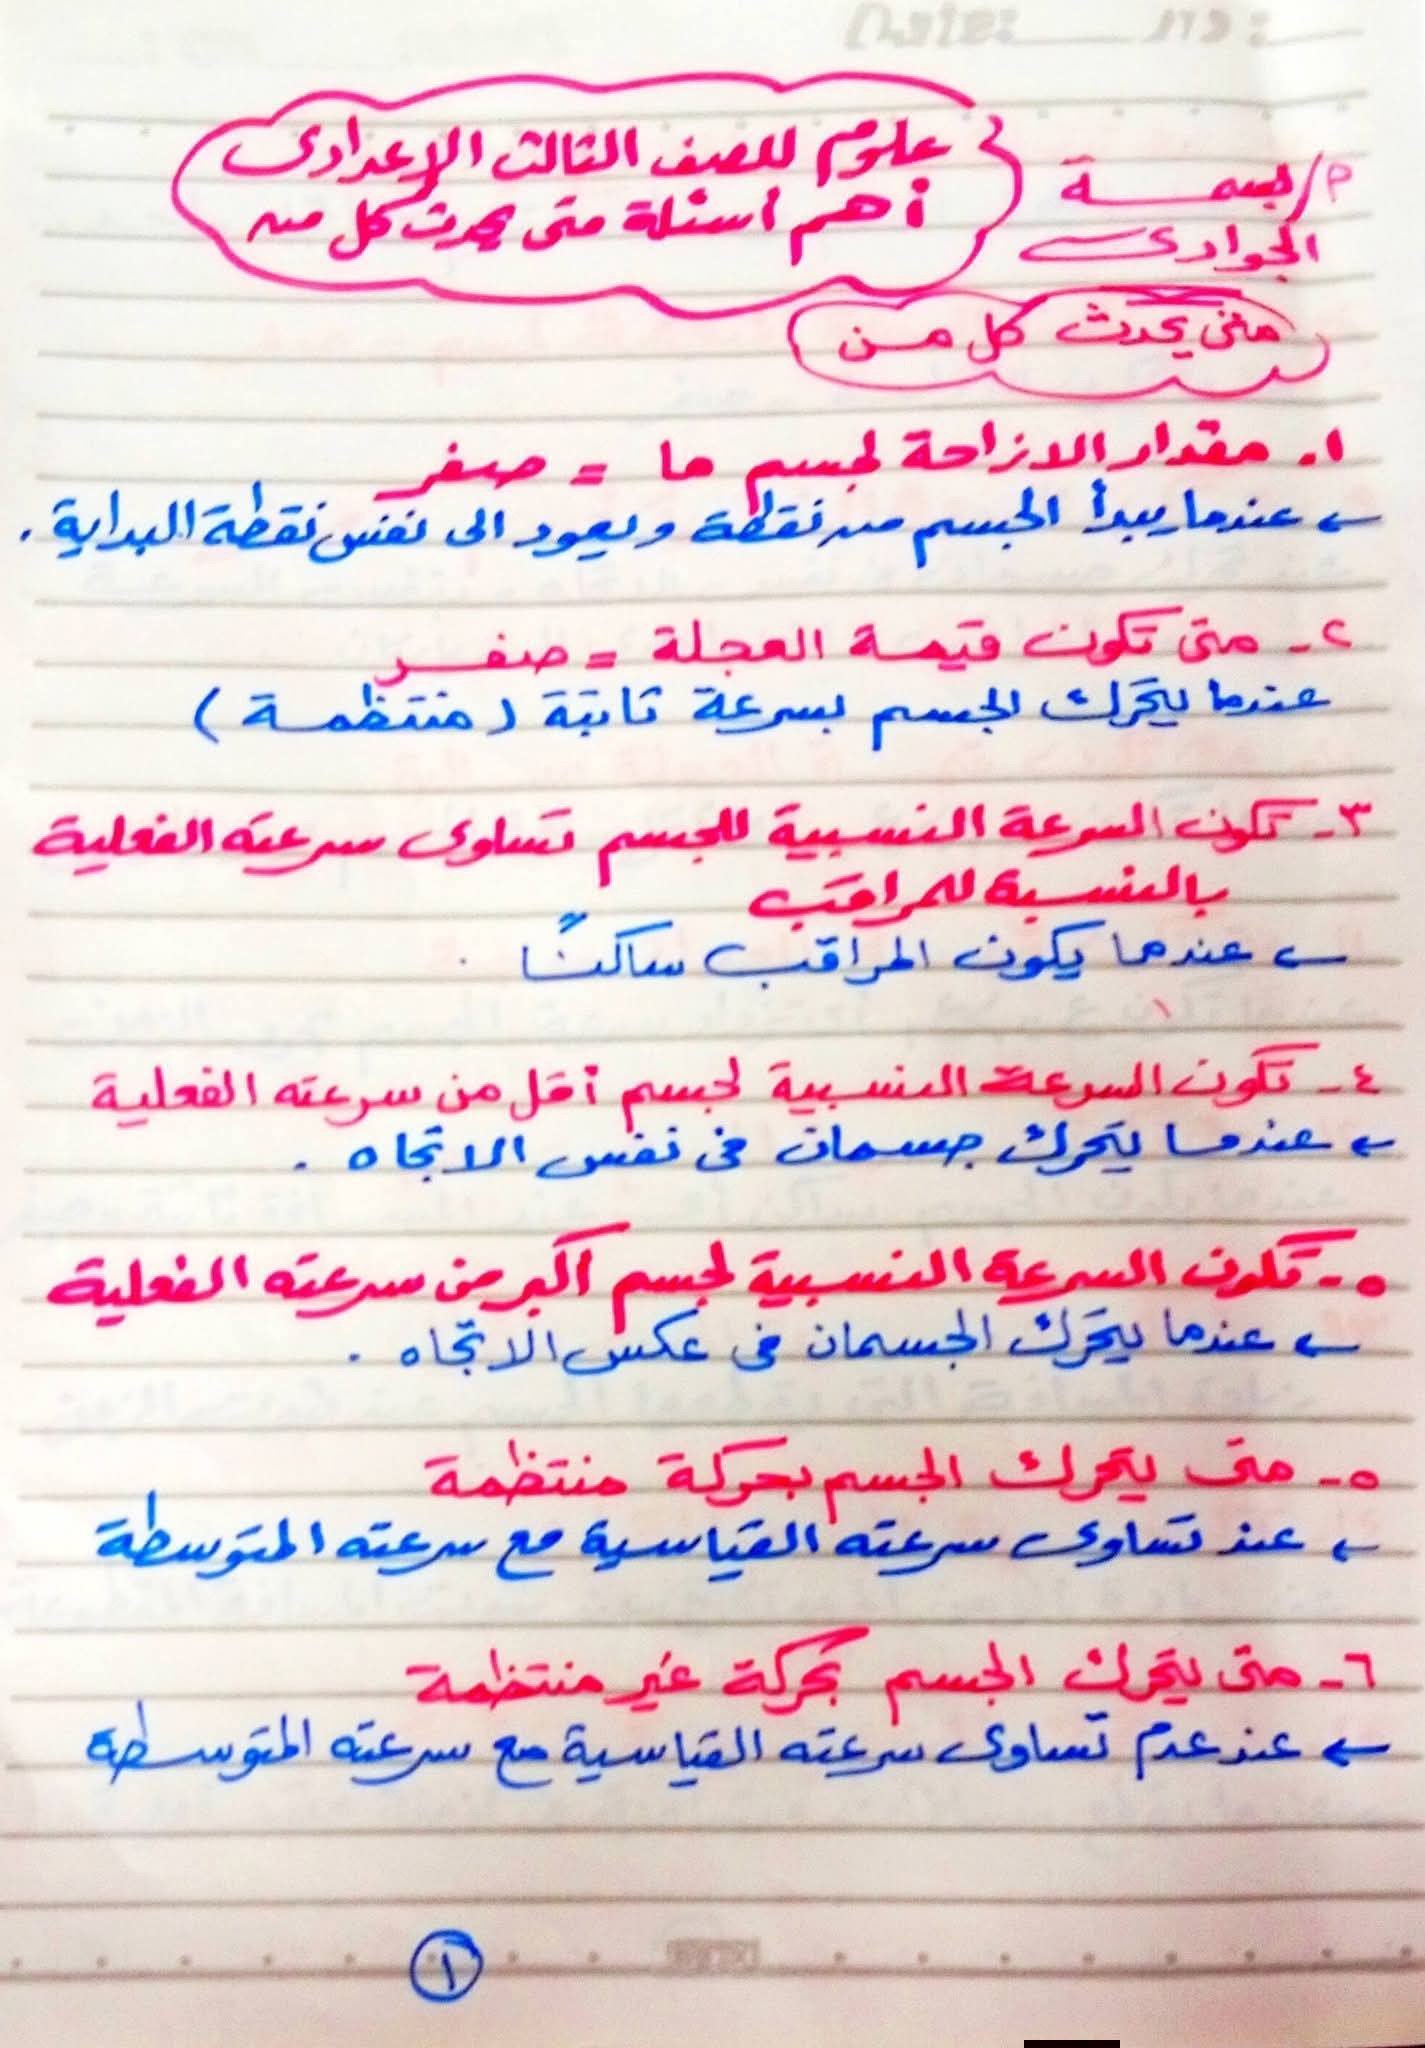 علوم للصف الثالث الإعدادى
أهم أسئلة متى يحدث كل من
م/ بسمة
الجوادى
متى يحدث كل من
١- مقدار الازاحة لجسم ما = صفر
← عندما يبدأ الجسم من نقطة ويعود الى نفس نقطة البداية .
٢- متى تكون قيمة العجلة = صفر
عندما يتحرك الجسم بسرعة ثابتة ( منتظمة )
٣- تكون السرعة النسبية للجسم تساوى سرعته الفعلية
بالنسبة للمراقب
← عندما يكون المراقب ساكنًا
٤- تكون السرعة النسبية لجسم أقل من سرعته الفعلية
← عندما يتحرك جسمان فى نفس الاتجاه .
٥- تكون السرعة النسبية لجسم أكبر من سرعته الفعلية
← عندما يتحرك الجسمان فى عكس الاتجاه .
٥- متى يتحرك الجسم بحركة منتظمة
← عند تساوى سرعته القياسية مع سرعته المتوسطة
٦- متى يتحرك الجسم بحركة غير منتظمة
← عند عدم تساوى سرعته القياسية مع سرعته المتوسطة
١